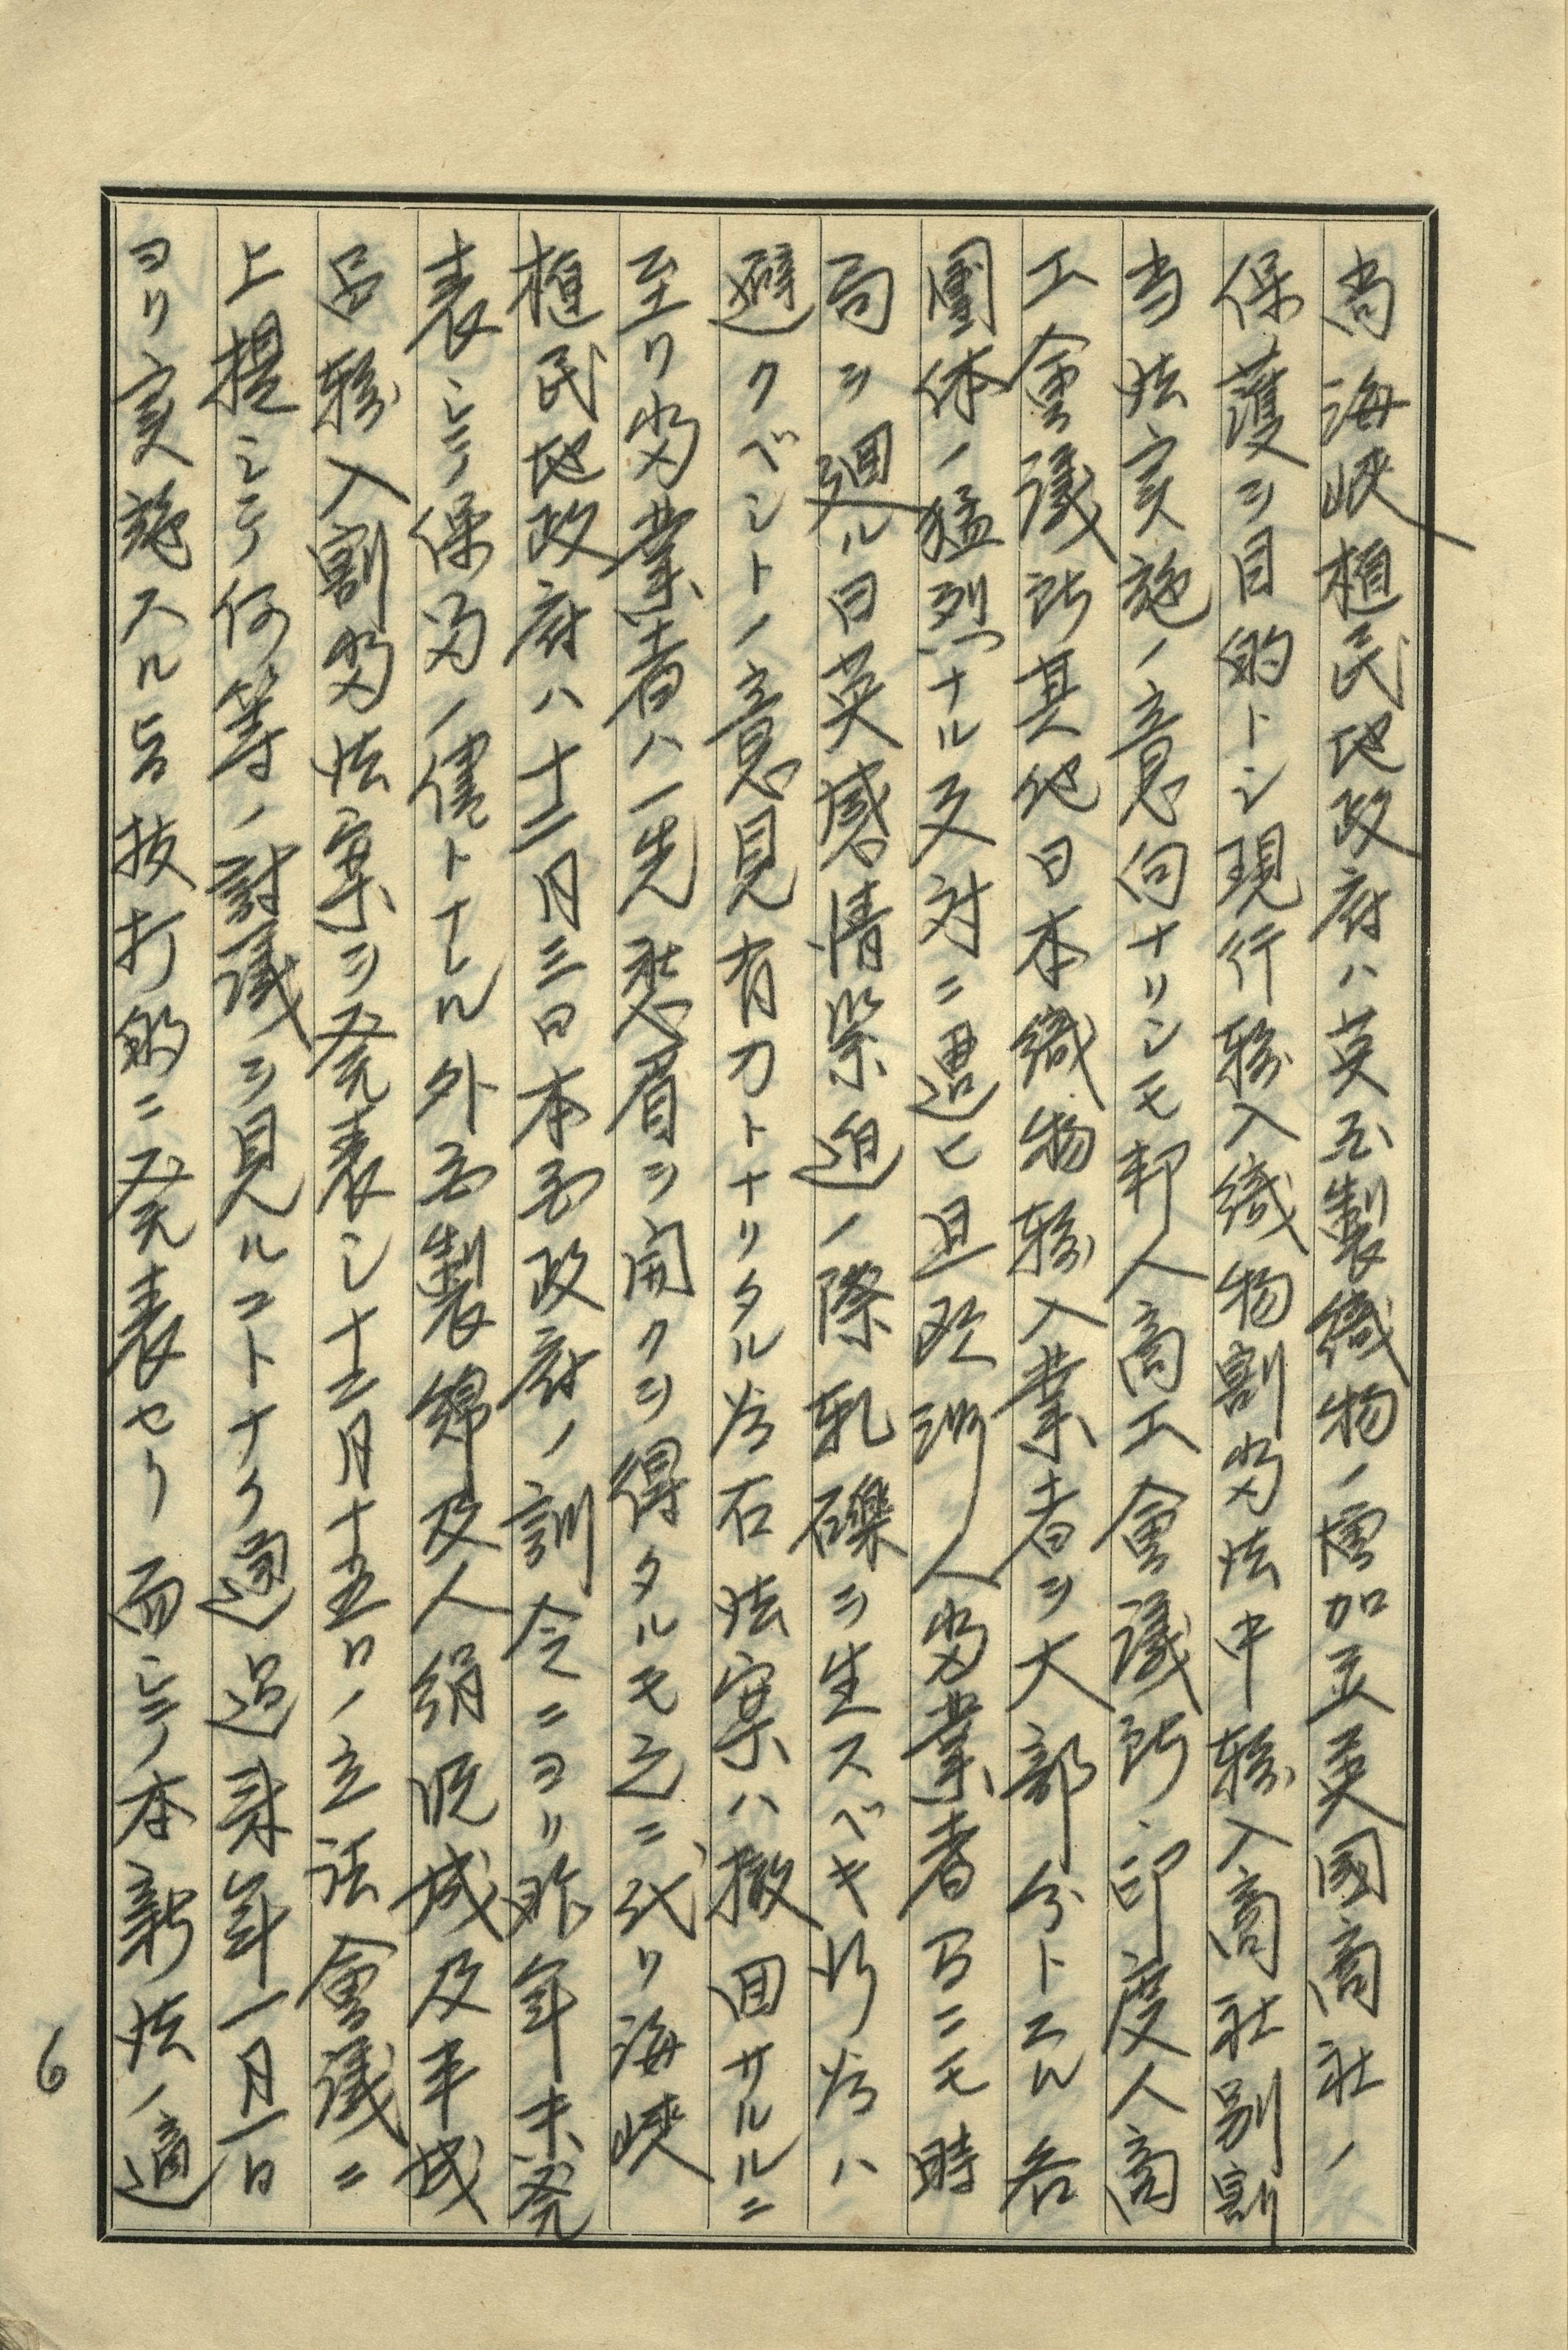 尚海峽植民地政府ハ英国製織物ノ増加並英國商社ノ
保護ヲ目的トシ現行輸入織物割当法中輸入商社別割
当法実施ノ意向ナリシモ邦人商工會議所、印度人商
工會議所其他日本織物輸入業者ヲ大部分トスル各
團体ノ猛烈ナル反対ニ遭ヒ且欧洲人当業者間ニモ時
局ヲ廻ル日英感情緊迫ノ際軋礫ヲ生スベキ行為ハ
避クベシトノ意見有力トナリタル為右法案ハ撤回サルルニ
至リ当業者ハ一先愁眉ヲ開クヲ得タルモ之ニ代リ海峽
植民地政府ハ十二月三日本国政府ノ訓令ニヨリ昨年末発
表シテ保留ノ儘トナレル外国製綿及人絹既成及半成
品輸入割当法案ヲ発表シ十二月十五日ノ立法會議ニ
上提シテ何等ノ討議ヲ見ルコトナク通過来年一月一日
ヨリ実施スル旨抜打的ニ発表セリ而シテ本新法ノ適
6